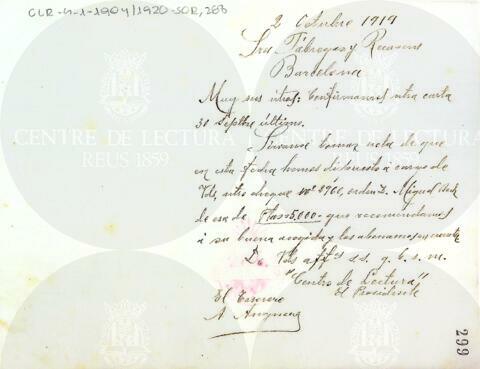 CLR-4-1-1904/1920-SOR,288
2 Octubre 1919
Sres Fabregas y Recasens
Barcelona
Muy sres ntros: Confirmamos ntra carta
30 Sepbre ultimo.
Sírvanse tomar nota de que
en esta fecha hemos dispuesto á cargo de
Vds, ntro cheque nº 2760, orden D. Miguel
de esa de Ptas 5,000- que recomendamos
á su buena acogida y les abonamos en cuenta
De Vds affmos s.s. q. b. s. m.
"Centro de Lectura"
El Presidente
El Tesorero
A
299
CENTRE DE LECTURA
REUS 1859
CENTRE DE LECTURA
REUS 1859